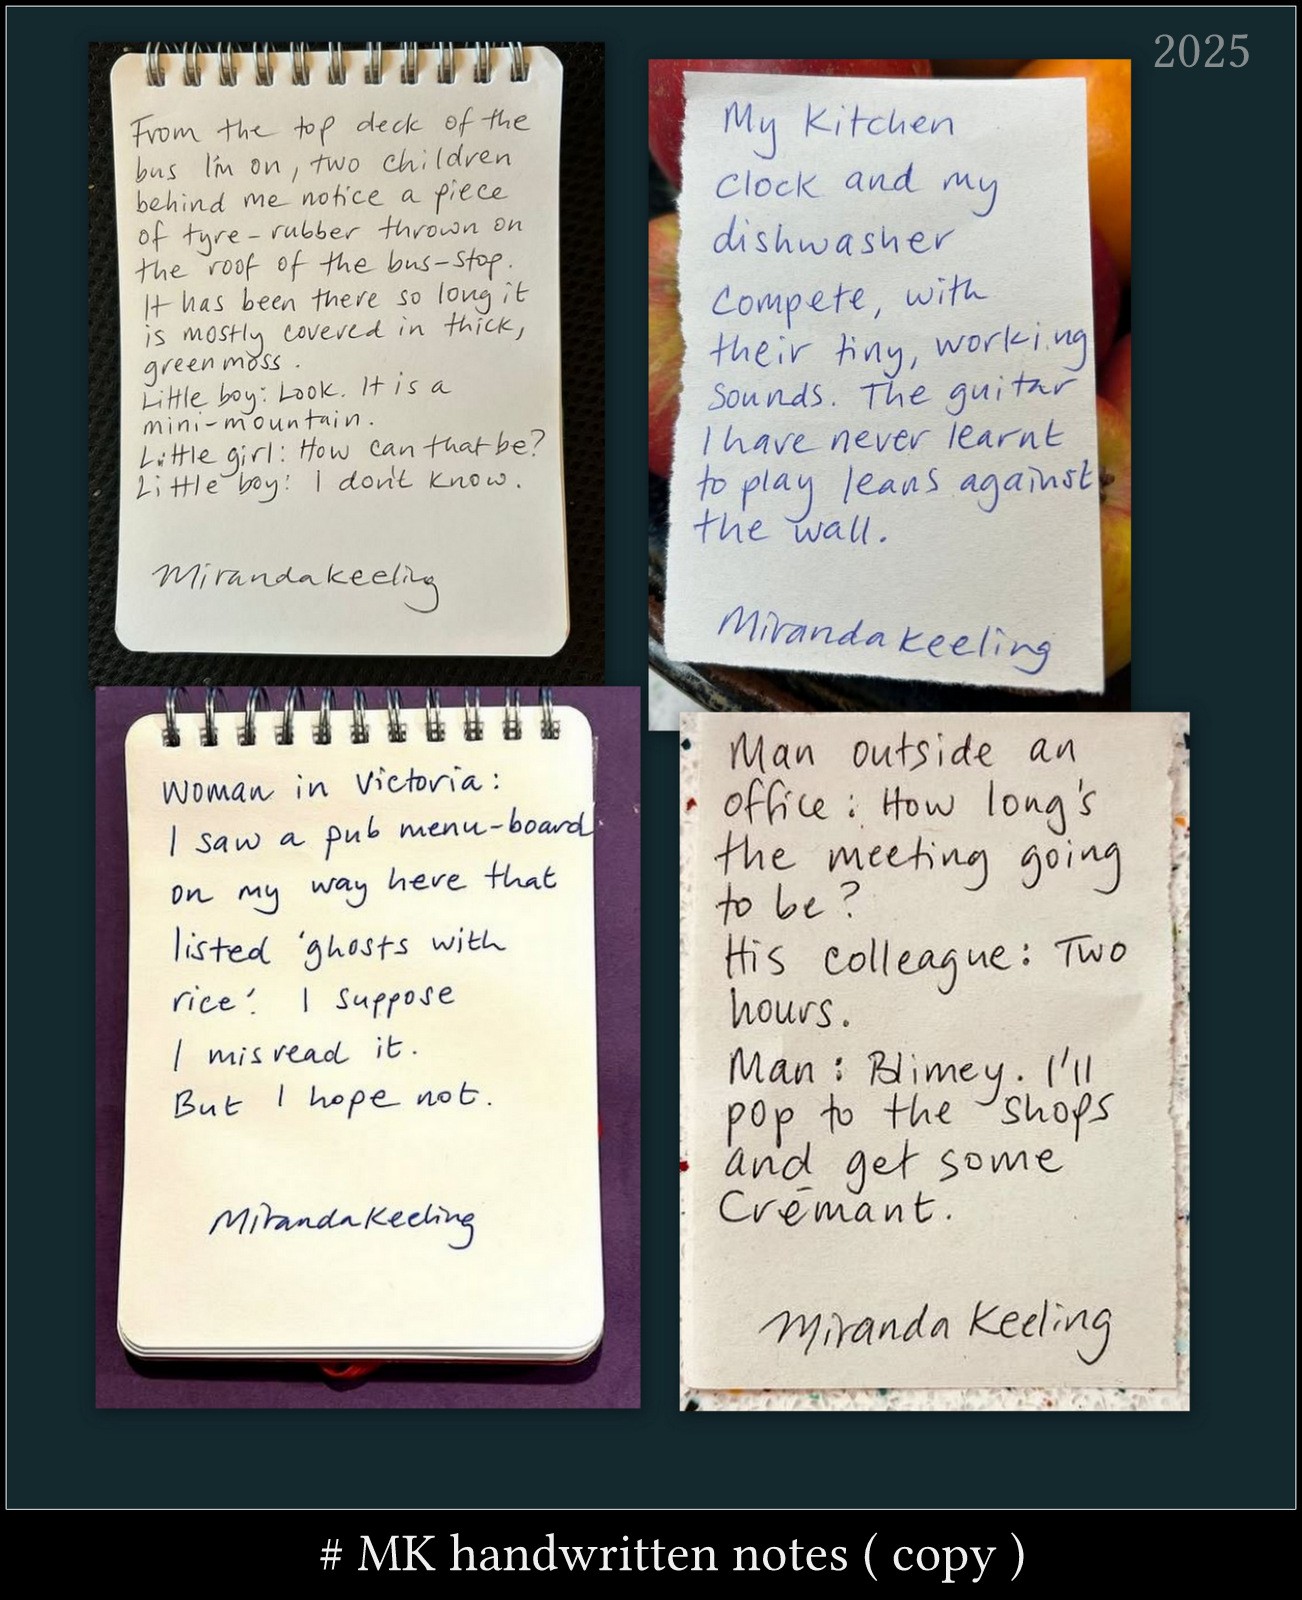 2025
From the top deck of the
bus I'm on, two children
behind me notice a piece
of tyre-rubber thrown on
the roof of the bus-stop.
It has been there so long it
is mostly covered in thick,
green moss.
Little boy: Look. It is a
mini-mountain.
Little girl: How can that be?
Little boy: I don't know.
Miranda Keeling
My Kitchen
Clock and my
dishwasher
Compete, with
their tiny, working
Sounds. The guitar
I have never learnt
to play leans against
the wall.
Miranda Keeling
Woman in Victoria:
I saw a pub menu-board
on my way here that
listed 'ghosts with
rice'. I suppose
I misread it.
But I hope not.
Miranda Keeling
Man outside an
office: How long's
the meeting going
to be?
His colleague: Two
hours.
Man: Blimey. I'll
pop to the shops
and get some
Crēmant.
Miranda Keeling
# MK handwritten notes ( copy )